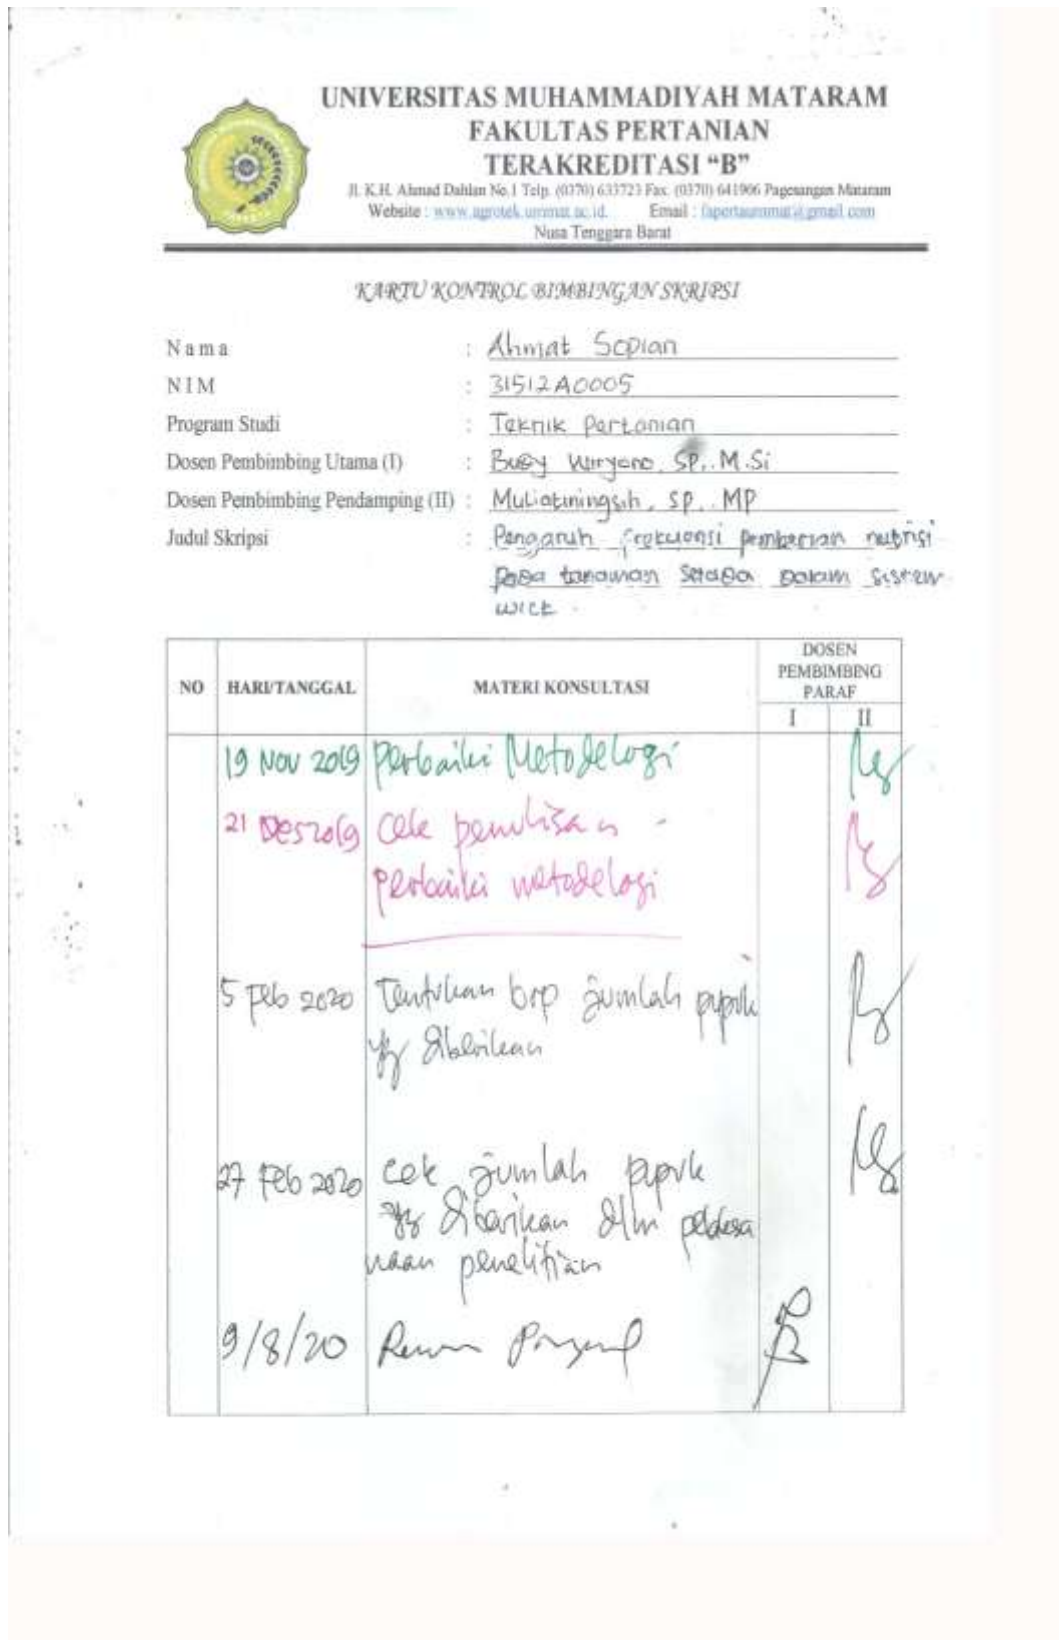 UNIVERSITAS MUHAMMADIYAH MATARAM
FAKULTAS PERTANIAN
TERAKREDITASI “B”
Jl. K.H. Ahmad Dahlan No.1 Telp. (0370) 633723 Fax. (0370) 641906 Pagesangan Mataram
Website : www.agrotek.ummat.ac.id. Email : fapertaummat@gmail.com
Nusa Tenggara Barat
KARTU KONTROL BIMBINGAN SKRIPSI
Nama : Ahmat Sopian
NIM : 31512A0005
Program Studi : Teknik Pertanian
Dosen Pembimbing Utama (I) : Budy Wiryono, SP., M.Si
Dosen Pembimbing Pendamping (II) : Muliatiningsih, SP., MP
Judul Skripsi : Pengaruh frekuensi pemberian nutrisi
pada tanaman Selada Dalam sistem
wick.
NO HARI/TANGGAL MATERI KONSULTASI DOSEN PEMBIMBING PARAF
I II
19 Nov 2019 Perbaiki Metodelogi
21 Des 2019 Cek penulisan -
perbaiki metodelogi
5 Feb 2020 Tentukan brp jumlah pupuk
yg diberikan
27 Feb 2020 cek jumlah pupuk
yg diberikan dlm pelaksa
naan penelitian
9/8/20